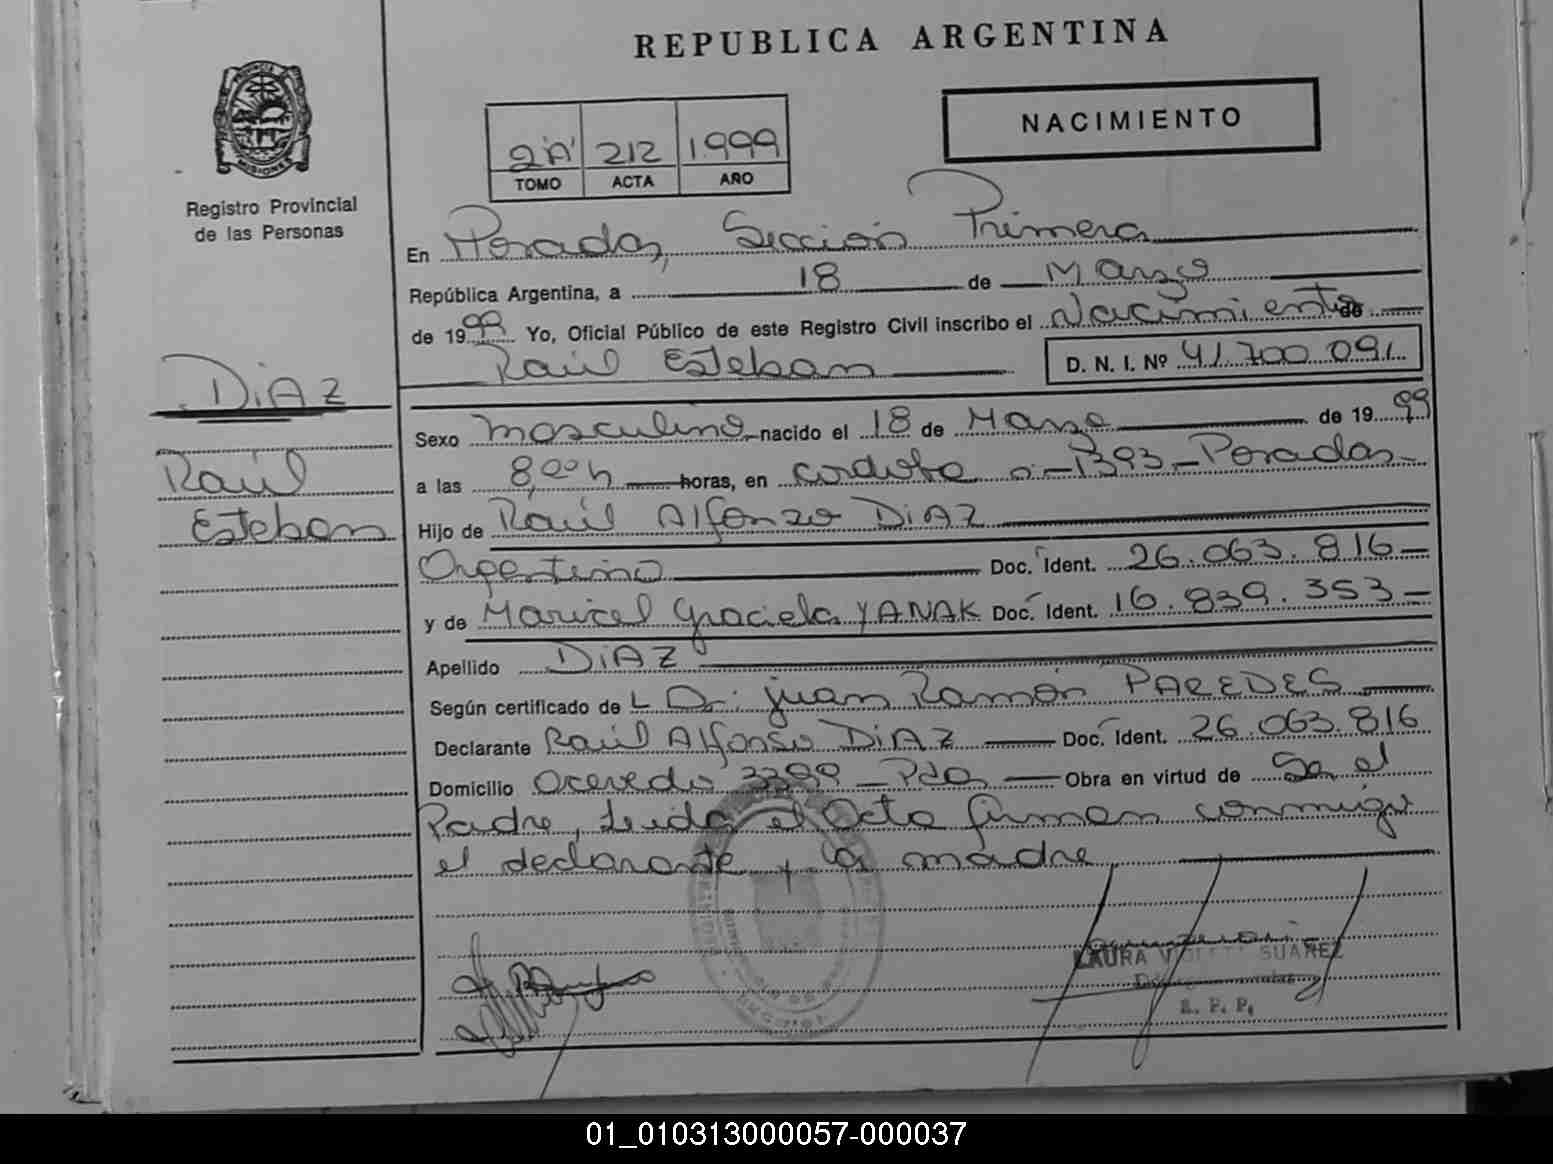 REPUBLICA ARGENTINA
NACIMIENTO
2"A" 212 1999
TOMO ACTA AÑO
PROVINCIA DE MISIONES
Registro Provincial
de las Personas
En Posadas, Sección Primera
República Argentina, a 18 de Marzo
de 1999 Yo, Oficial Público de este Registro Civil inscribo el Nacimiento de
Raúl Esteban D. N. I. Nº 41.700.091
DiAZ
Raúl
Esteban
Sexo masculino nacido el 18 de Marzo de 1999
a las 8,00 h horas, en cordoba 1393 - Posadas -
Hijo de Raúl Alfonso DiAZ
Argentino Doc. Ident. 26.063.816 -
y de Maricel Graciela YANAK Doc. Ident. 16.839.353 -
Apellido DiAZ
Según certificado de L Dr. Juan Ramón PAREDES
Declarante Raúl Alfonso DiAZ Doc. Ident. 26.063.816
Domicilio Acevedo 3299 - Pdas Obra en virtud de Ser el
Padre, Leida el Acta firman conmigo
el declarante y la madre
LAURA SUAREZ
01_010313000057-000037